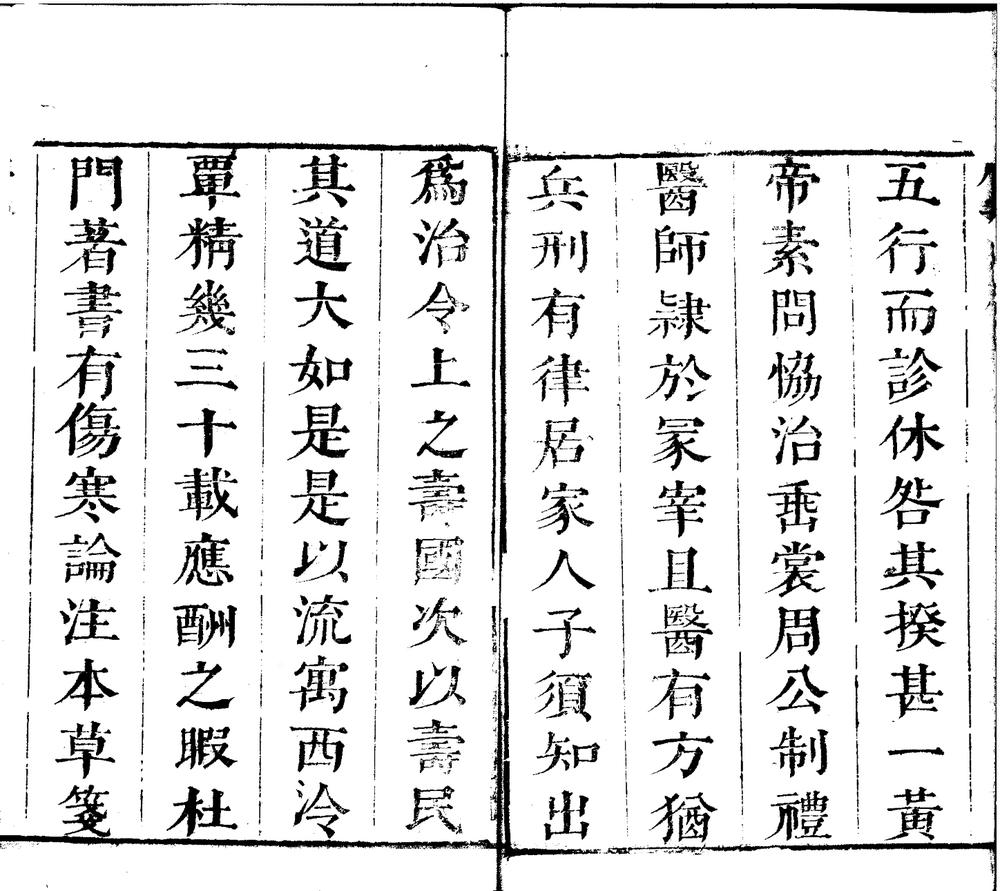 五行而診休咎其揆甚一黃
帝素問恊治垂裳周公制禮
醫師隷於冢宰且醫有方猶
兵刑有律居家人子須知出
爲治令上之壽國次以壽民
其道大如是是以流寓西泠
覃精幾三十載應酬之暇杜
門著書有傷寒論注本草箋